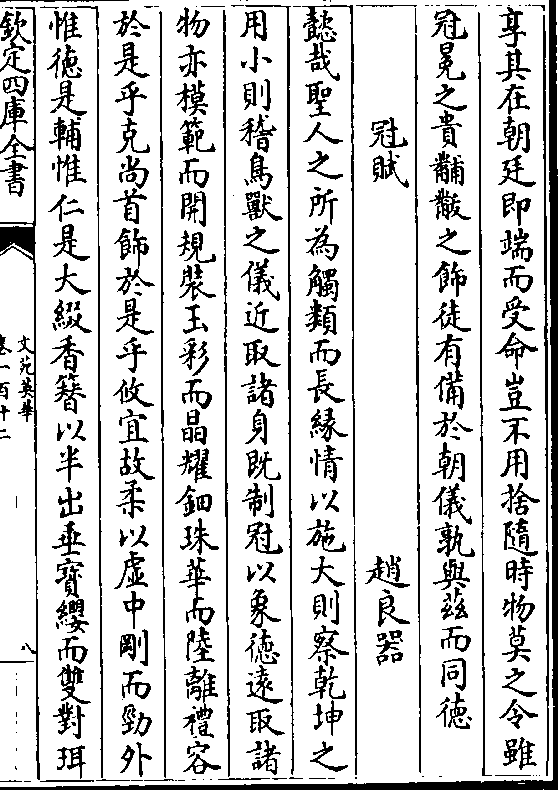 享其在朝廷即端而受命豈不用捨隨時物莫之令雖
冠冕之貴黼黻之飾徒有備於朝儀孰與茲而同徳
冠賦 趙良器
懿哉聖人之所為觸類而長縁情以施大則察乾坤之
用小則稽鳥獸之儀近取諸身既制冠以象徳遠取諸
物亦模範而開規裝玉彩而晶耀鈿珠華而陸離禮容
於是乎克尚首飾於是乎攸宜故柔以虚中剛而勁外
惟徳是輔惟仁是大綴香簪以半出垂寳纓而雙對珥
欽定四庫全書
文苑英華
卷一百十二
八